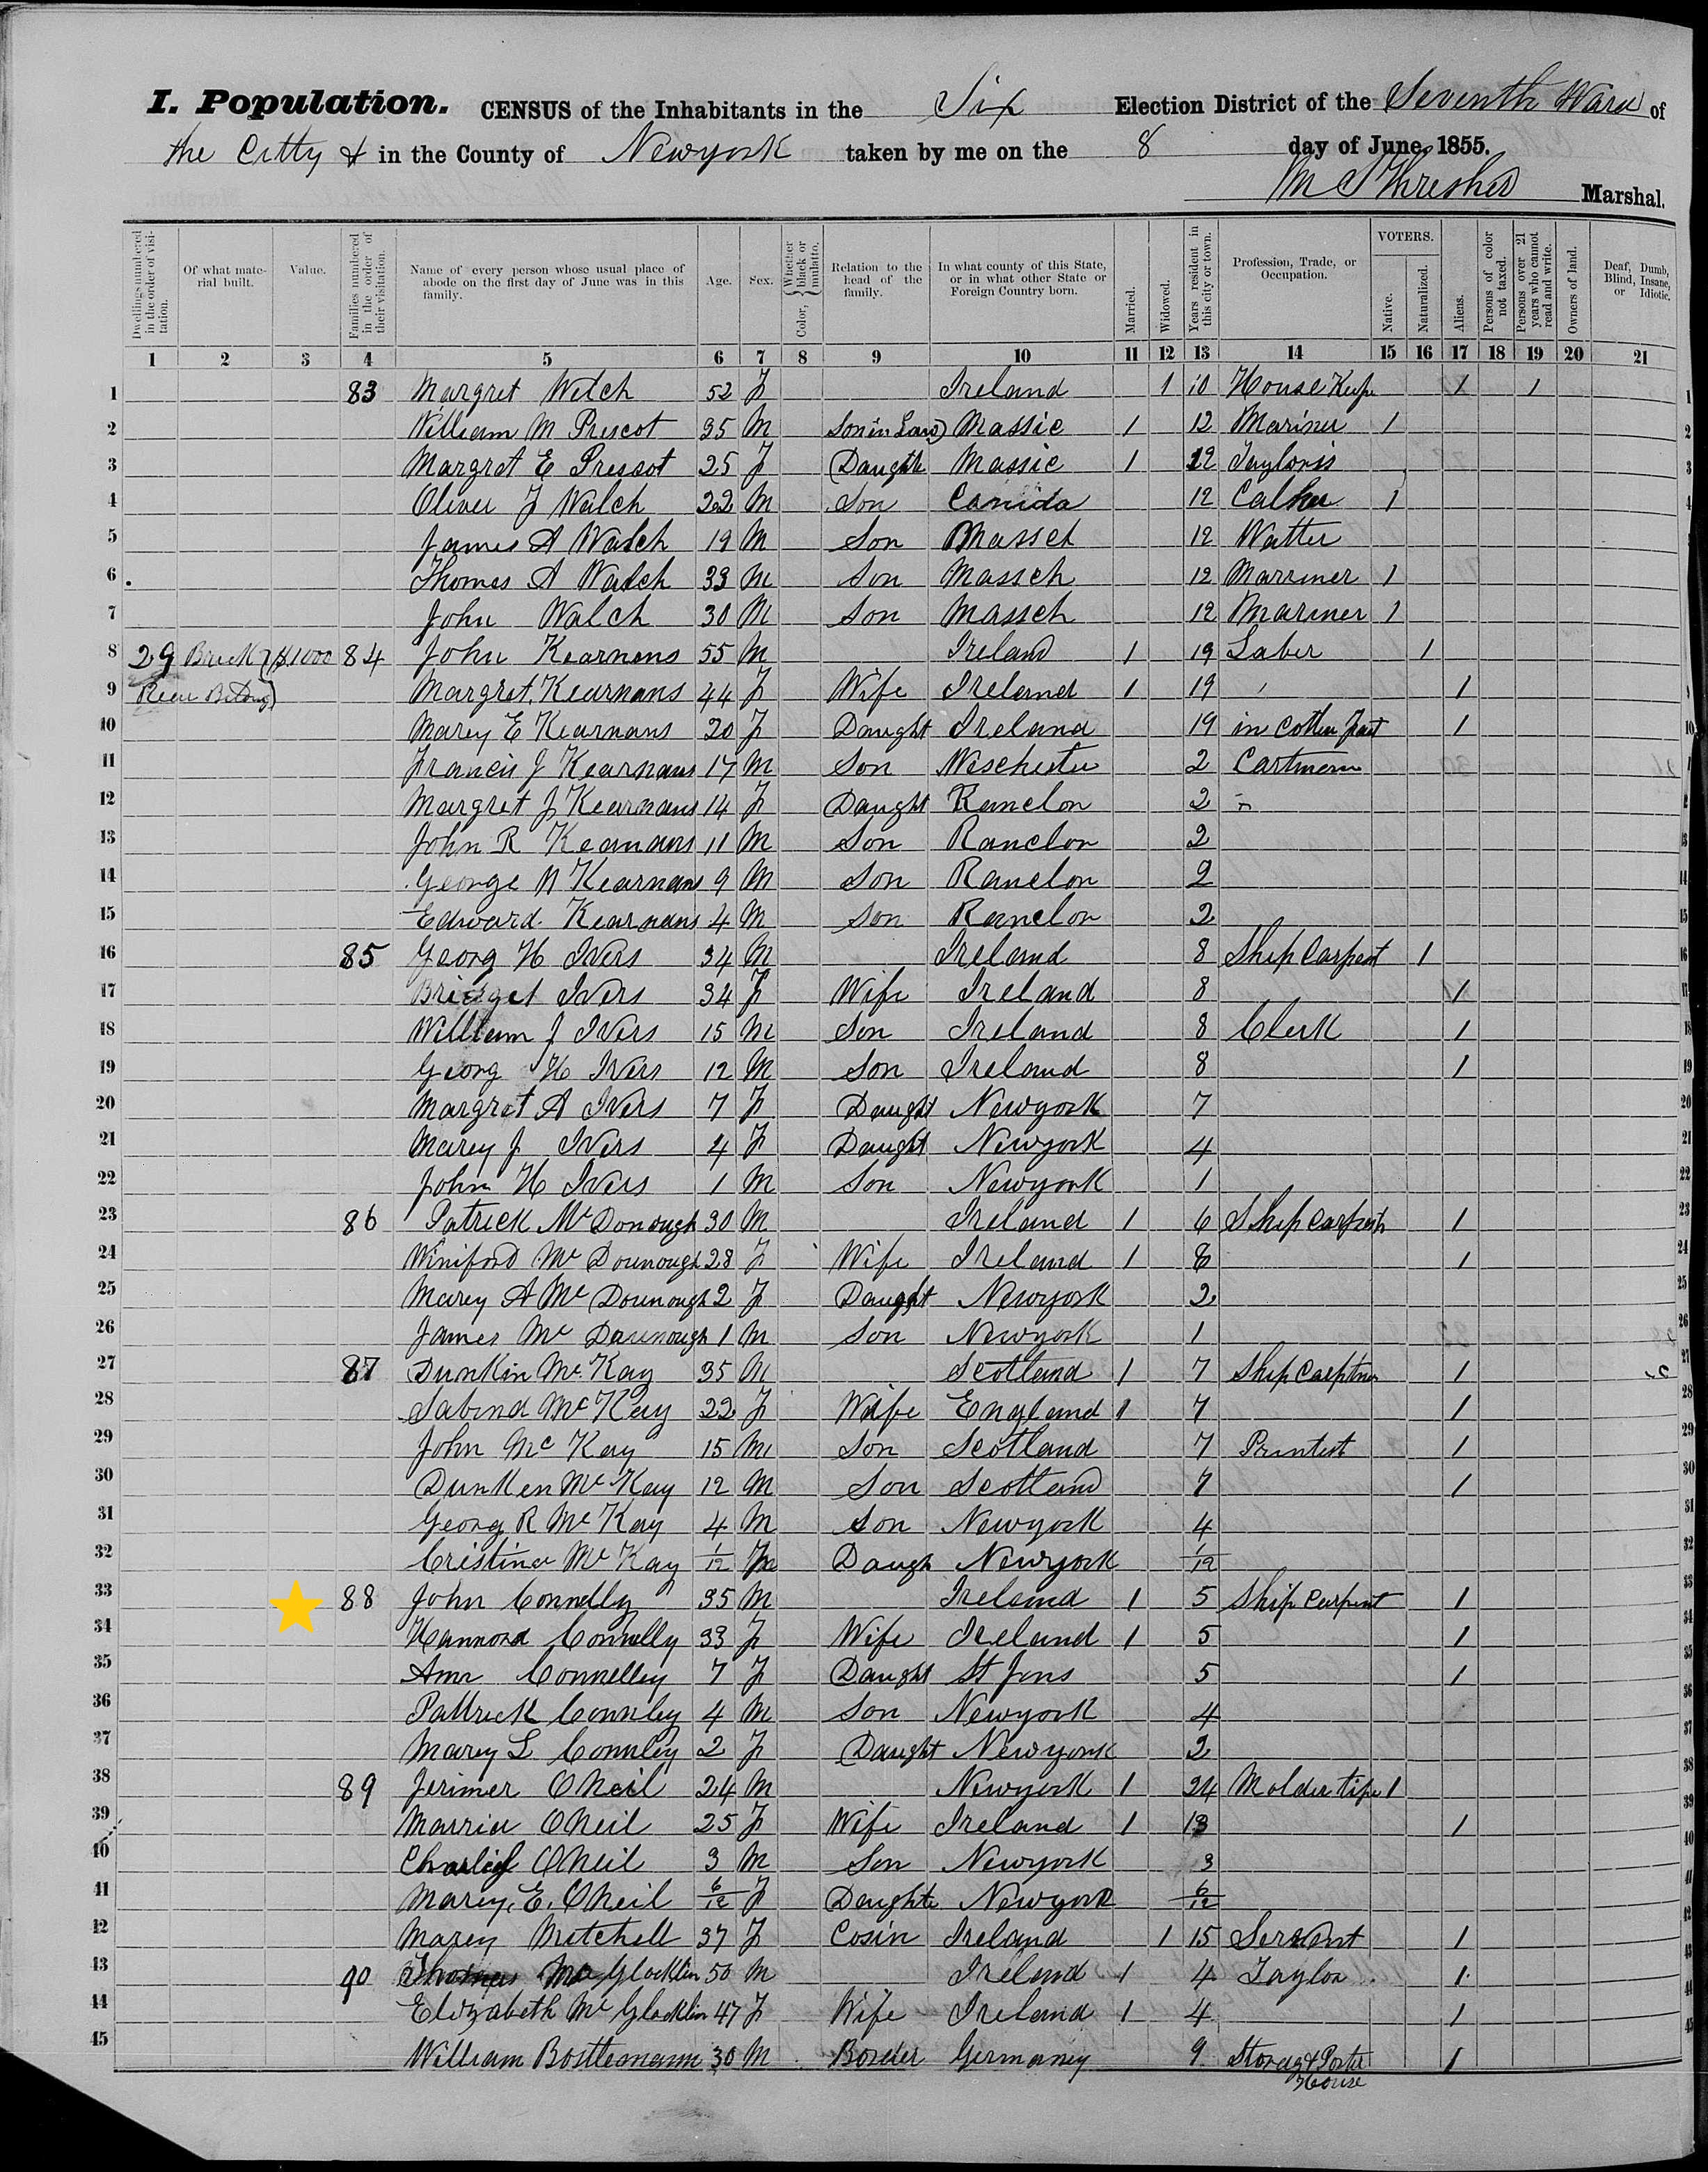 I. Population. CENSUS of the Inhabitants in the Six Election District of the Seventh Ward of
the Citty & in the County of Newyork taken by me on the 8 day of June, 1855.
M S Thresher Marshal.
Dwellings numbered in the order of visitation. Of what material built. Value. Families numbered in the order of their visitation. Name of every person whose usual place of abode on the first day of June was in this family. Age. Sex. Color, Whether black or mulatto. Relation to the head of the family. In what county of this State, or in what other State or Foreign Country born. Married. Widowed. Years resident in this city or town. Profession, Trade, or Occupation. VOTERS. Native. Naturalized. Aliens. Persons of color not taxed. Persons over 21 years who cannot read and write. Owners of land. Deaf, Dumb, Blind, Insane, or Idiotic.
1 2 3 4 5 6 7 8 9 10 11 12 13 14 15 16 17 18 19 20 21
1 83 Margret Welch 52 F Ireland 1 10 House Keepe 1 1 1
2 William M Prescot 35 M Son in Law Massie 1 12 Mariner 1 2
3 Margret E Prescot 25 F Daughte Massie 1 12 Tayloris 3
4 Oliver J Walch 22 M Son Canida 12 1 4
5 James A Walch 19 M Son Massct 12 Watter 5
6 Thomas A Walch 33 M Son Massch 12 Marriner 1 6
7 John Walch 30 M Son Massch 12 Mariner 1 7
8 29 Brick $1000 84 John Kearnans 55 M Ireland 1 19 Laber 1
9 Rear Margret Kearnans 44 F Wife Ireland 1 19 1
10 Marey E Kearnans 20 F Daught Ireland 19 in Cotten 1 10
11 Francis J Kearnans 17 M Son Weschester 2 Cartman
12 Margret J Kearnans 14 F Daught 2
13 John R Kearnans 11 M Son 2 13
14 George N Kearnans 9 M Son 2 14
15 Edward Kearnans 4 M Son 2 15
16 85 Georg H Ivers 34 M Ireland 8 Ship Carpent 1 16
17 Bridget Ivers 34 F Wife Ireland 8 1 17
18 William J Ivers 15 M Son Ireland 8 Clerk 1 18
19 Georg H Ivers 12 M Son Ireland 8 1 19
20 Margret A Ivers 7 F Daught Newyork 7 20
21 Marey J Ivers 4 F Daught Newyork 4 21
22 John H Ivers 1 M Son Newyork 1 22
23 86 Patrick McDonough 30 M Ireland 1 6 Ship Carpentr 1 23
24 Winiford Mc Dounough 28 F Wife Ireland 1 6 1 24
25 Marey A Mc Dounough 2 F Daught Newyork 2 25
26 James Mc Dounough 1 M Son Newyork 1 26
27 87 Dunkin Mc Kay 35 M Scotland 1 7 Ship Carptner 1 27
28 Sabina Mc Kay 22 F Wife England 1 7 1 28
29 John Mc Kay 15 M Son Scotland 7 1 29
30 Dunken Mc Kay 12 M Son Scotland 7 1 30
31 Georg R Mc Kay 4 M Son Newyork 4 31
32 Cristina Mc Kay 1/12 Daugh Newyork 1/12 32
33 88 John Connelly 35 M Ireland 1 5 Ship Carpent 1 33
34 Hannora Connelly 33 F Wife Ireland 1 5 1 34
35 Ann Connelley 7 F Daught St Jons 5 1 35
36 Pattrick Connley 4 M Son Newyork 4 36
37 Marey L Connley 2 F Daught Newyork 2 37
38 89 Jerimer ONeil 24 M Newyork 1 24 Molder tipe 1 38
39 Marrier ONeil 25 F Wife Ireland 1 13 1 39
40 Charlies ONeil 3 M Son Newyork 3 40
41 Marey E. ONeil 6/12 F Daughte Newyork 6/12 41
42 Marey Mitchell 37 F Cosin Ireland 1 15 Servant 1 42
43 90 Thomas Mc Glocklin 50 M Ireland 1 4 Taylor 1 43
44 Elizabeth Mc Glocklin 47 F Wife Ireland 1 4 1 44
45 William Bostlemann 30 M Border Germaney 9 Storeg & Porter House 1 45